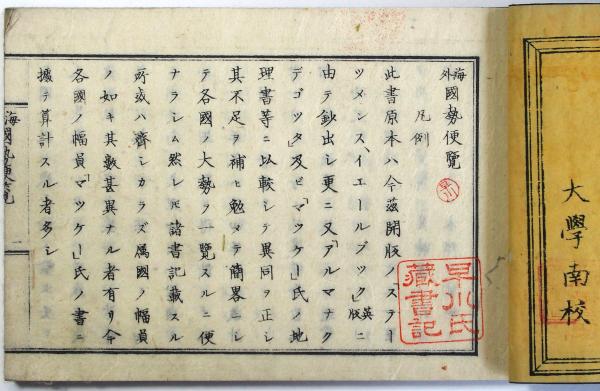 大學南校
海外國勢便覽
凡例
此書原本ハ今茲開版ノステー
ツメンス、イエールブック英版ニ
由テ鈔出シ更ニ又「アルマナク
デゴッタ」及ビ「マツケー」氏ノ地
理書等ニ以較シテ異同ヲ正シ
其不足ヲ補ヒ勉メテ簡畧ニシ
テ各國ノ大勢ヲ一覽スルニ便
ナラシム然レ𪜈諸書記載スル
所或ハ齊シカラズ属國ノ幅員
ノ如キ其數甚異ナル者有リ今
各國ノ幅員「マツケー」氏ノ書ニ
據テ算計スル者多シ
早川氏藏書記
早川
海外國勢便覽
一